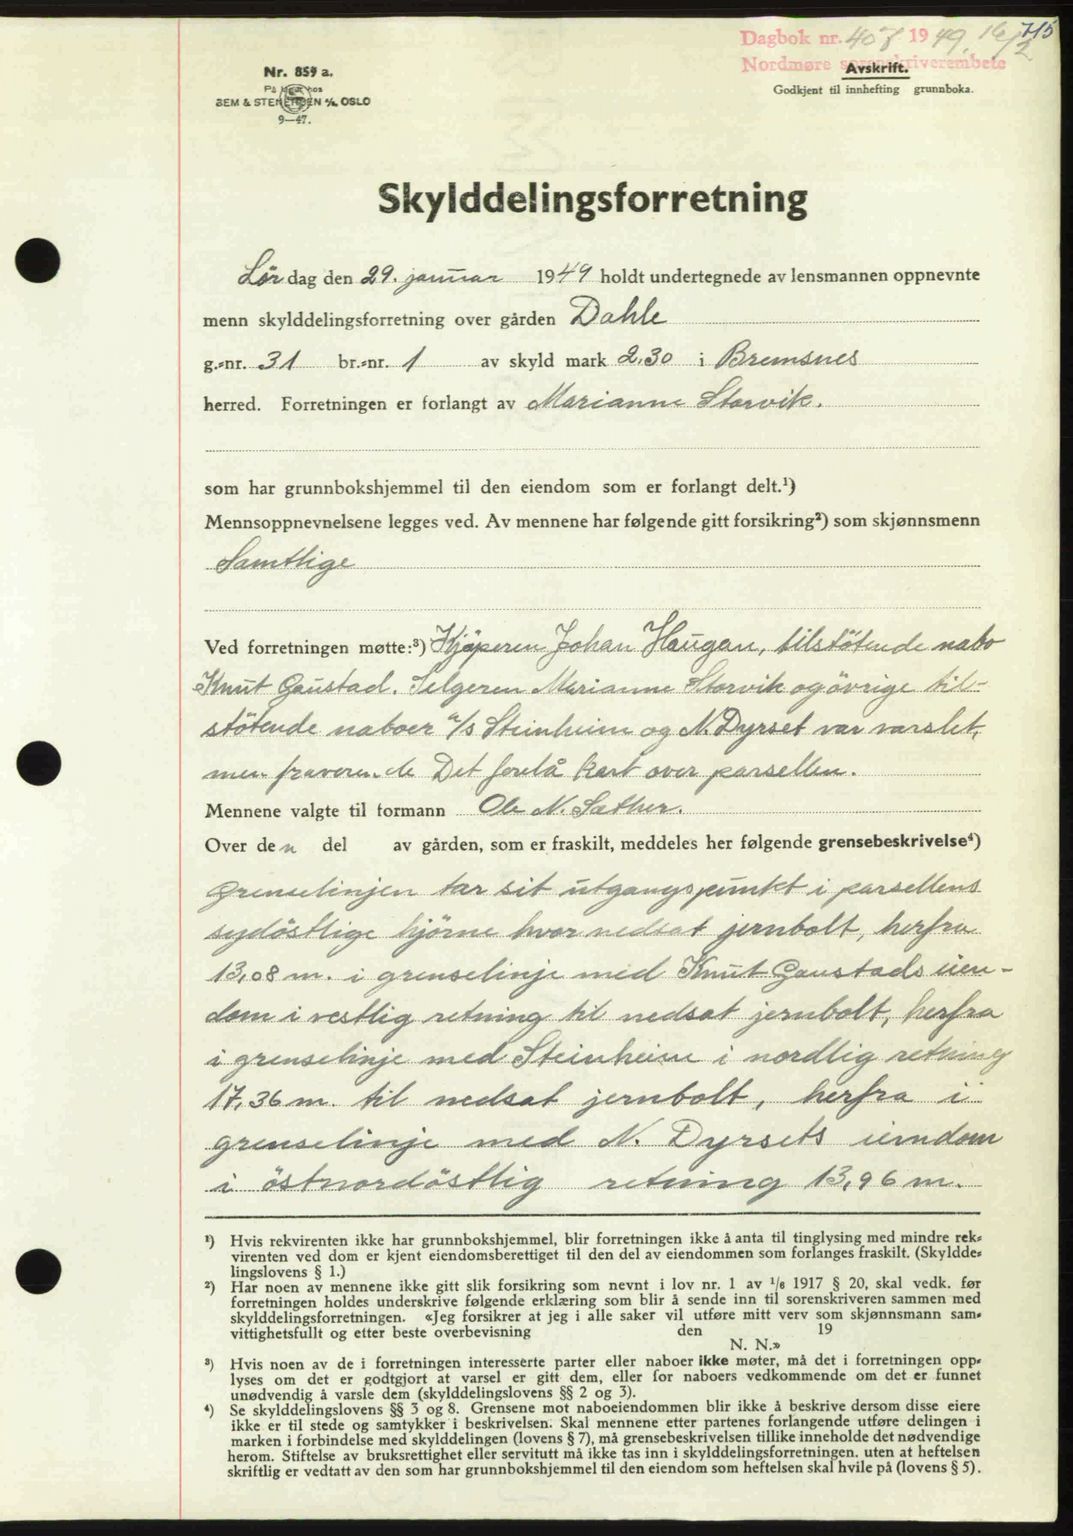 715
Dagbok nr. 407 1949. 16/2
Nordmøre sorenskriverembete
Avskrift.
Godkjent til innhefting grunnboka.
Nr. 859 a.
På lager hos
SEM & STENERSEN A/S, OSLO
9—47.
Skylddelingsforretning
Lör dag den 29. januar 1949 holdt undertegnede av lensmannen oppnevnte
menn skylddelingsforretning over gården Dahle
g.-nr. 31 br.-nr. 1 av skyld mark 2,30 i Bremsnes
herred. Forretningen er forlangt av Marianne Storvik.
som har grunnbokshjemmel til den eiendom som er forlangt delt.¹)
Mennsoppnevnelsene legges ved. Av mennene har følgende gitt forsikring²) som skjønnsmenn
Samtlige
Ved forretningen møtte:³) Kjöperen Johan Haugan, tilstötende nabo
Knut Gaustad. Selgeren Marianne Storvik og övrige til-
stötende naboer a/s Steinheim og N. Dyrset var varslet,
men fraverende Det forelå kart over parsellen.
Mennene valgte til formann Ole N. Sæther.
Over den del av gården, som er fraskilt, meddeles her følgende grensebeskrivelse⁴)
Grenselinjen tar sit utgangspunkt i parsellens
sydöstlige hjörne hvor nedsat jernbolt, herfra
13,08 m. i grenselinje med Knut Gaustads eien-
dom i vestlig retning til nedsat jernbolt, herfra
i grenselinje med Steinheim i nordlig retning
17,36 m. til nedsat jernbolt, herfra i
grenselinje med N. Dyrsets eiendom
i östnordöstlig retning 13,96 m.
¹) Hvis rekvirenten ikke har grunnbokshjemmel, blir forretningen ikke å anta til tinglysing med mindre rek-
virenten ved dom er kjent eiendomsberettiget til den del av eiendommen som forlanges fraskilt. (Skyldde-
lingslovens § 1.)
²) Har noen av mennene ikke gitt slik forsikring som nevnt i lov nr. 1 av 1/6 1917 § 20, skal vedk. før
forretningen holdes underskrive følgende erklæring som blir å sende inn til sorenskriveren sammen med
skylddelingsforretningen. «Jeg forsikrer at jeg i alle saker vil utføre mitt verv som skjønnsmann sam-
vittighetsfullt og etter beste overbevisning den 19
N. N.»
³) Hvis noen av de i forretningen interesserte parter eller naboer ikke møter, må det i forretningen opp-
lyses om det er godtgjort at varsel er gitt dem, eller for naboers vedkommende om det er funnet
unødvendig å varsle dem (skylddelingslovens §§ 2 og 3).
⁴) Se skylddelingslovens §§ 3 og 8. Grensene mot naboeiendommen blir ikke å beskrive dersom disse eiere
ikke er til stede og samtykker i beskrivelsen. Skal mennene etter partenes forlangende utføre delingen i
marken i forbindelse med skylddelingen (lovens § 7), må grensebeskrivelsen tillike inneholde det nødvendige
herom. Stiftelse av bruksrettighet eller servitutt må ikke tas inn i skylddelingsforretningen, uten at heftelsen
skriftlig er vedtatt av den som har grunnbokshjemmel til den eiendom som heftelsen skal hvile på (lovens § 5).